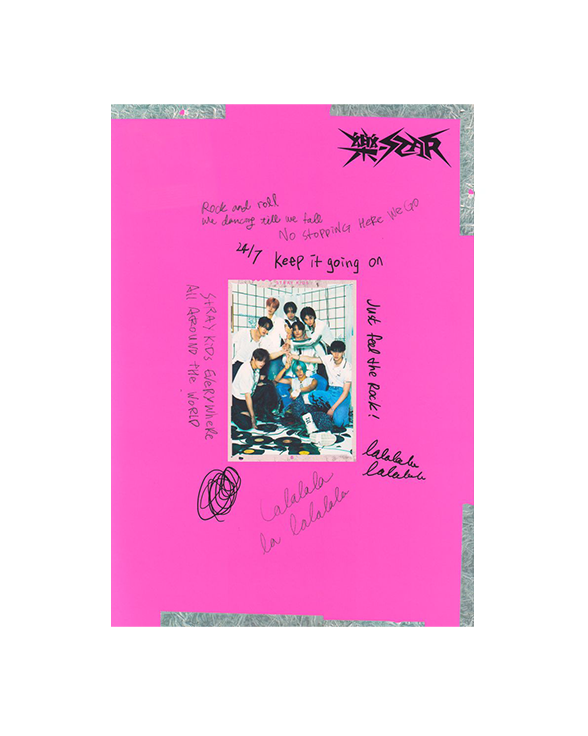 樂-STAR
Rock and roll
We dancing till we fall
No stopping Here we go
24/7
Keep it going on
Just feel the Rock!
STRAY KIDS EVERYWHERE
All AROUND THE WORLD
lalalala
lalalala
Lalalala
la lalalala